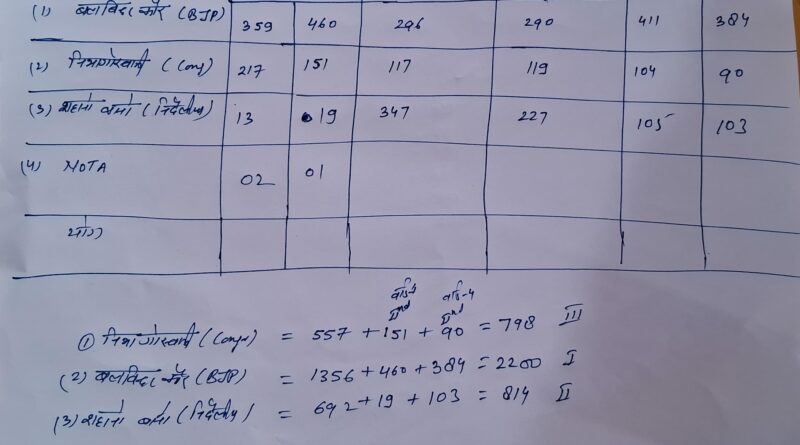 (1) बलविंदर कौर (BJP) 359 460 296 290 411 384
(2) (Cong) 217 151 117 119 104 90
(3) (निर्दलीय) 13 19 347 227 105 103
(4) NOTA 02 01
योग
वार्ड-1 वार्ड-4
IInd IInd
① (Cong) = 557 + 151 + 90 = 798 III
(2) बलविंदर कौर (BJP) = 1356 + 460 + 384 = 2200 I
(3) (निर्दलीय) = 692 + 19 + 103 = 814 II